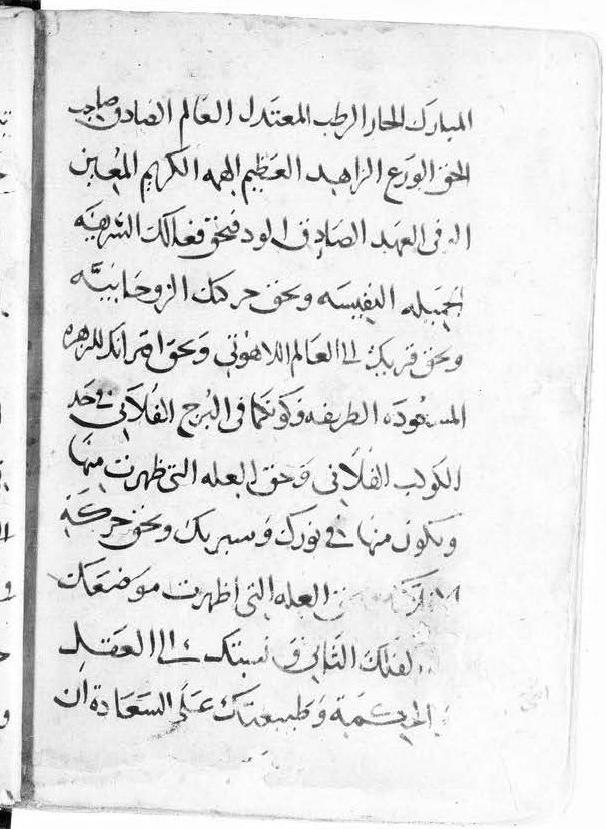 المبارك الحار الرطب المعتدل العالم الصادق صاحب
الحق الورع الزاهد العظيم الهمه الكريم المعين
الوفى العهد الصادق الود فبحق فعالك الشريفه
الجميله النفيسه وبحق حركتك الروحانيه
وبحق قربك الى العالم اللاهوتى وبحق اقترانك للزهره
المسعوده الطريفه وكونكما فى البرج الفلانى فى حد
الكوكب الفلانى وبحق العله التى ظهرت منها
وتكون منها فى نورك وسيرك وبحق حركة
العله التى اظهرت موضعك
الفلك الثانى ونسبتك الى العقل
الحكمة وطبيعتك على السعادة ان